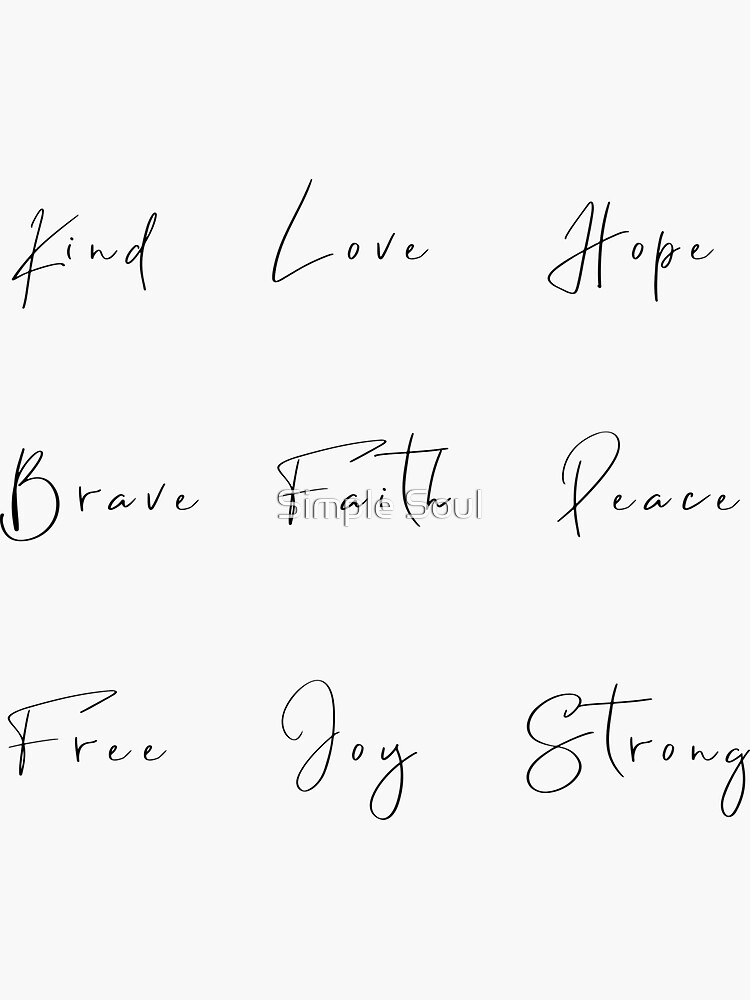 Kind Love Hope
Brave Faith Peace
Simple Soul
Free Joy Strong